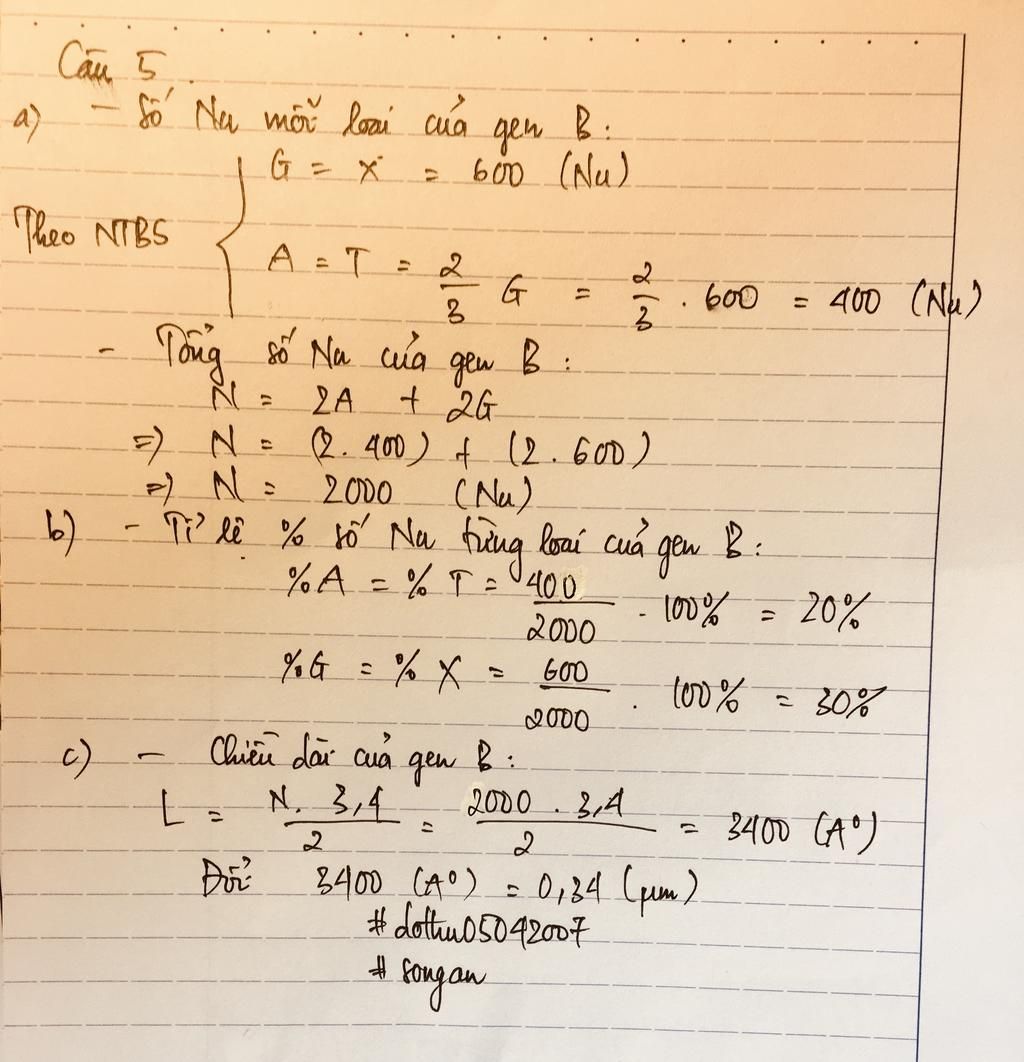 Câu 5.
a) - Số Nu mỗi loại của gen B:
G = X = 600 (Nu)
Theo NTBS
A = T = 2/3 G = 2/3 . 600 = 400 (Nu)
- Tổng số Nu của gen B:
N = 2A + 2G
=) N = (2.400) + (2.600)
=) N = 2000 (Nu)
b) - Tỉ lệ % số Nu từng loại của gen B:
%A = % T = 400/2000 . 100% = 20%
%G = % X = 600/2000 . 100% = 30%
c) - Chiều dài của gen B:
L = N. 3,4/2 = 2000 . 3,4/2 = 3400 (A°)
Đổi 3400 (A°) = 0,34 (µm)
# dothu05042007
# songan